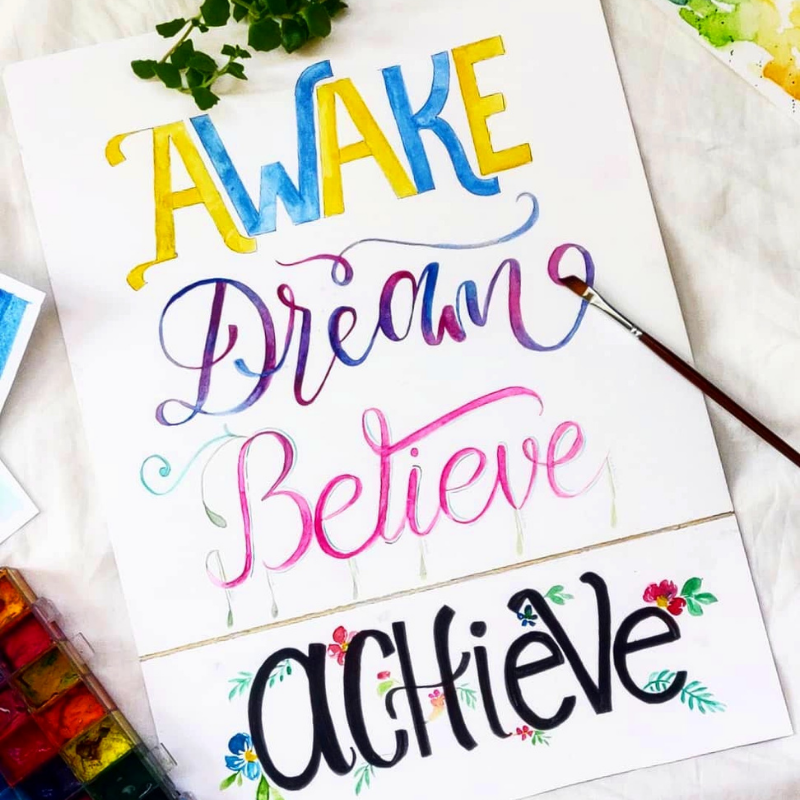 AWAKE
Dream
Believe
acHieVe